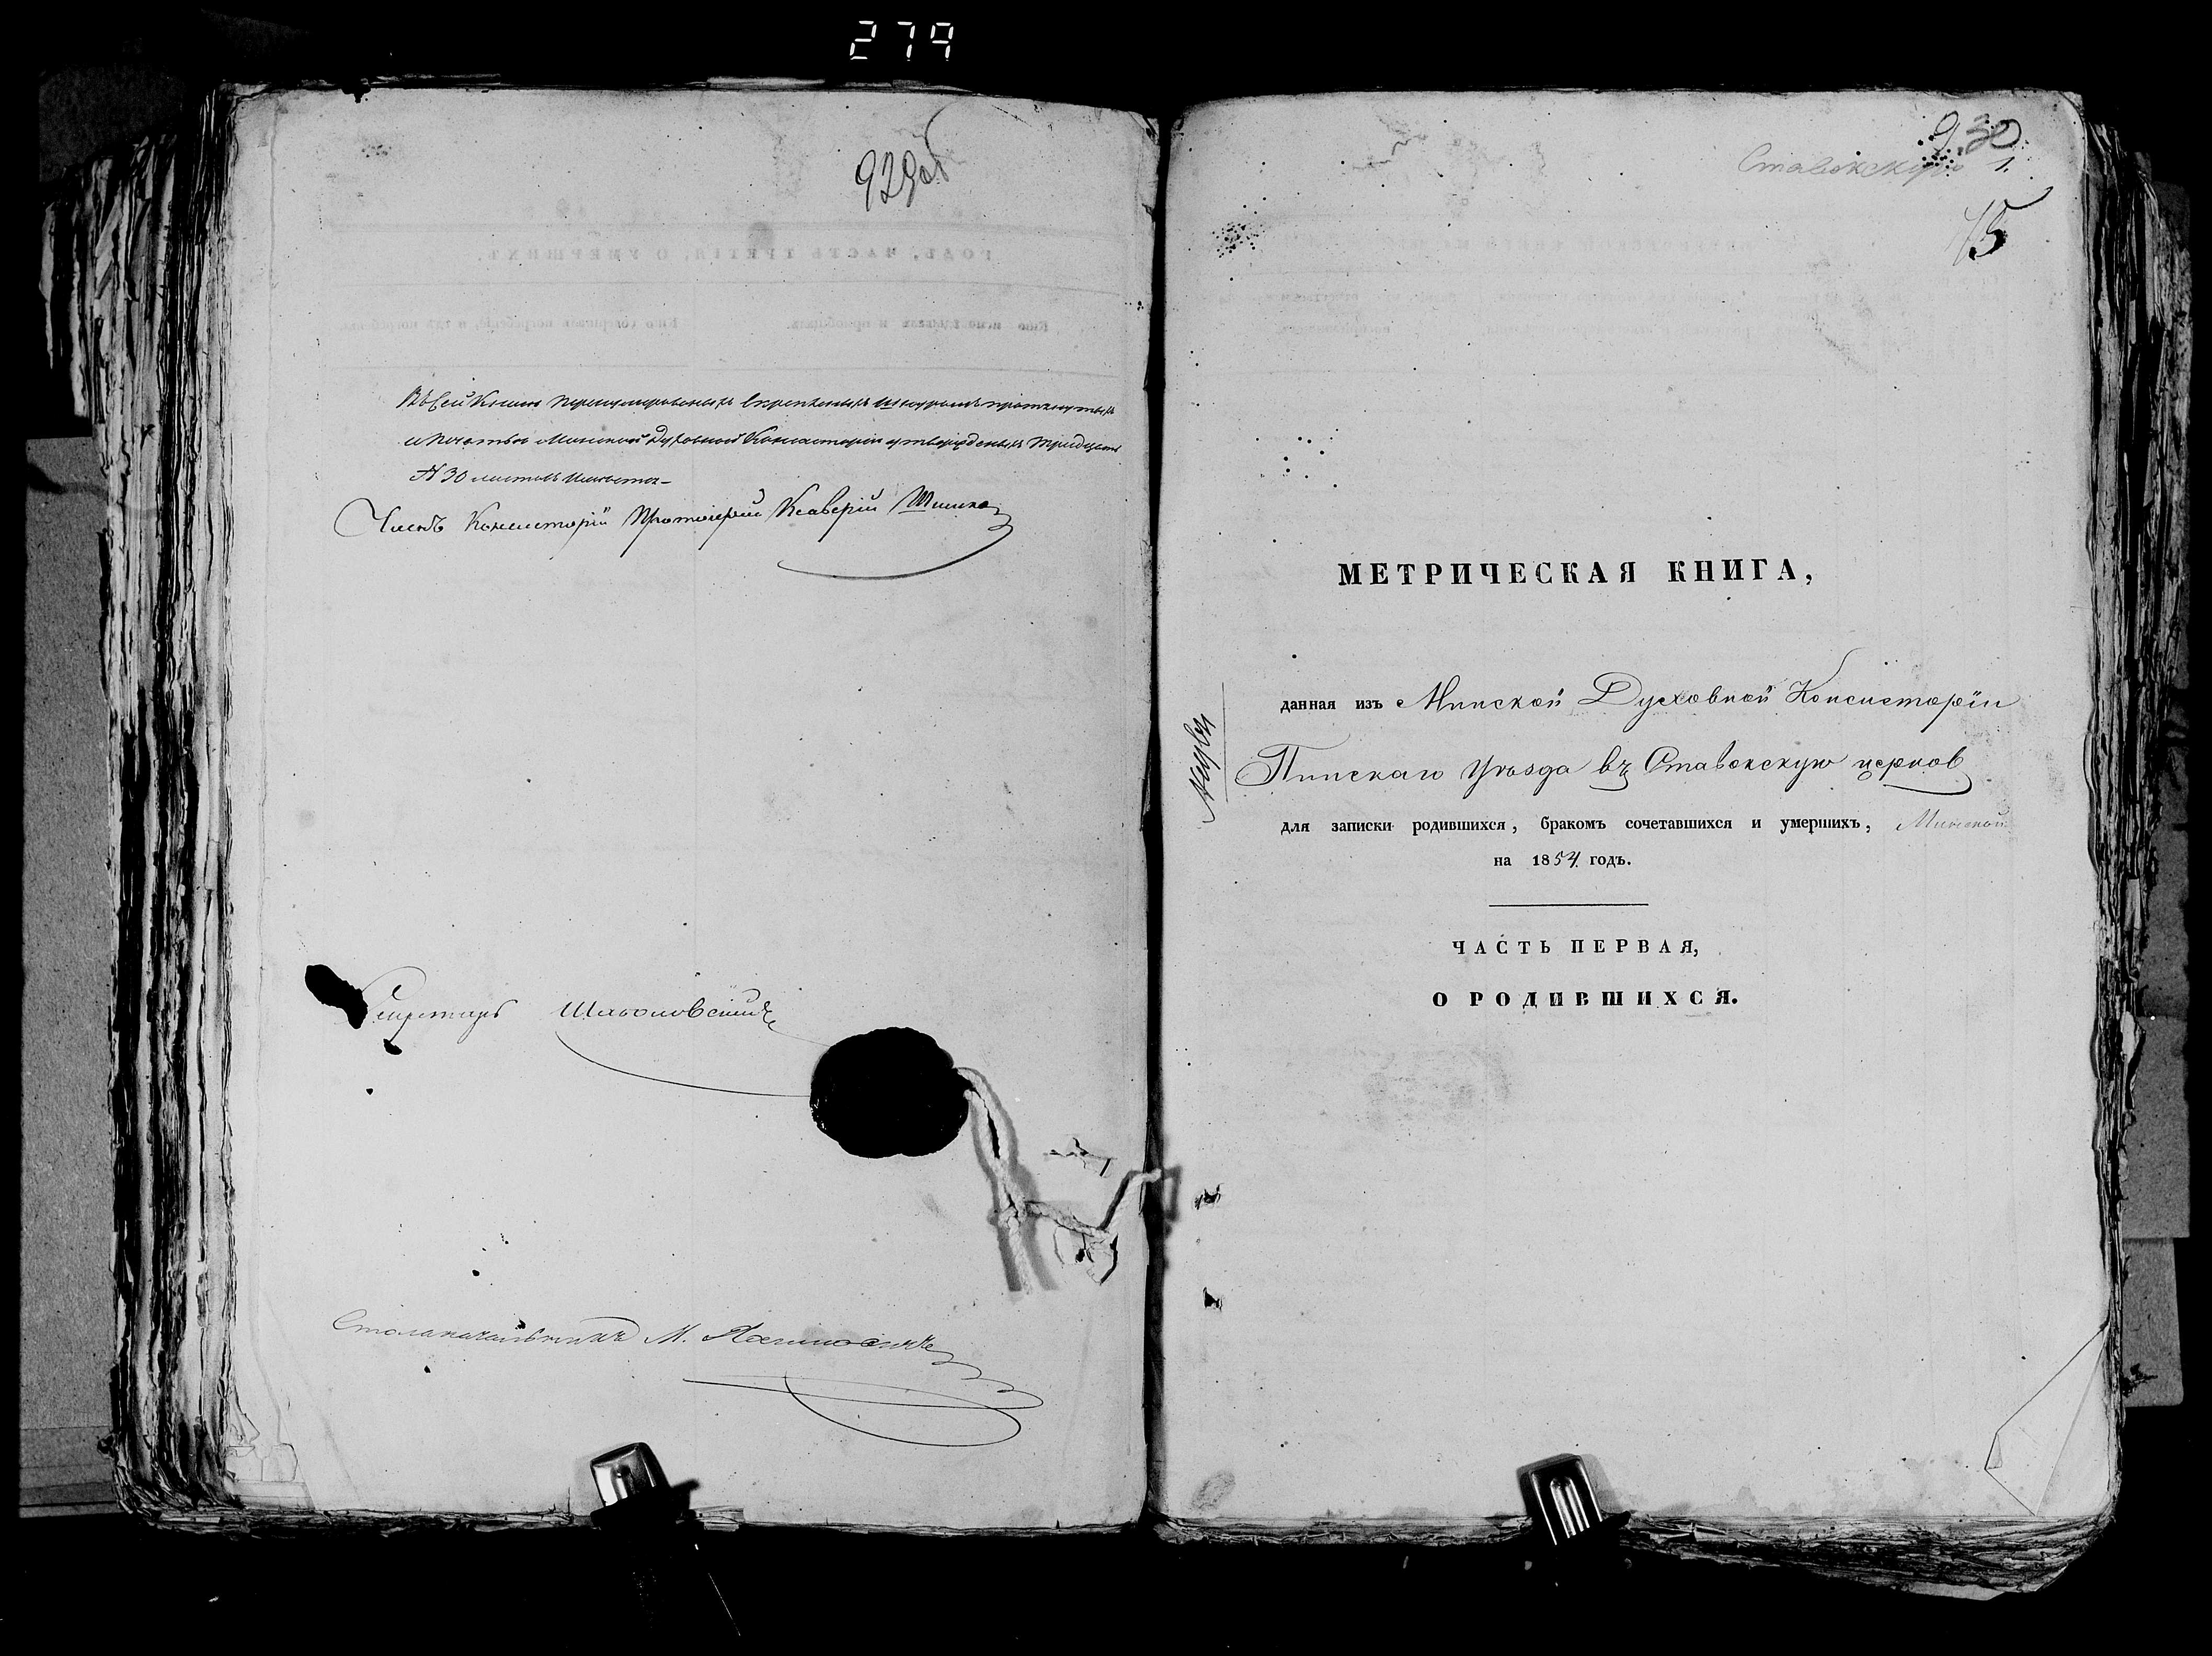 279
929об
Въ сей книгѣ перенумерованныхъ скрепленныхъ шнуромъ протянутыхъ
и печатью Минской Духовной Консисторіи утвержденныхъ тридцать
№ 30 листовъ имѣется
Членъ Консисторіи Протоіерей Ксаверій
Секретарь
Столоначальникъ М.
930
Ставокскую 1.
15
МЕТРИЧЕСКАЯ КНИГА,
данная изъ Минской Духовной Консисторіи
Пинскаго Уѣзда въ Ставокскую церков
для записки родившихся, бракомъ сочетавшихся и умершихъ, Минской
на 1854 годъ.
ЧАСТЬ ПЕРВАЯ,
О РОДИВШИХСЯ.